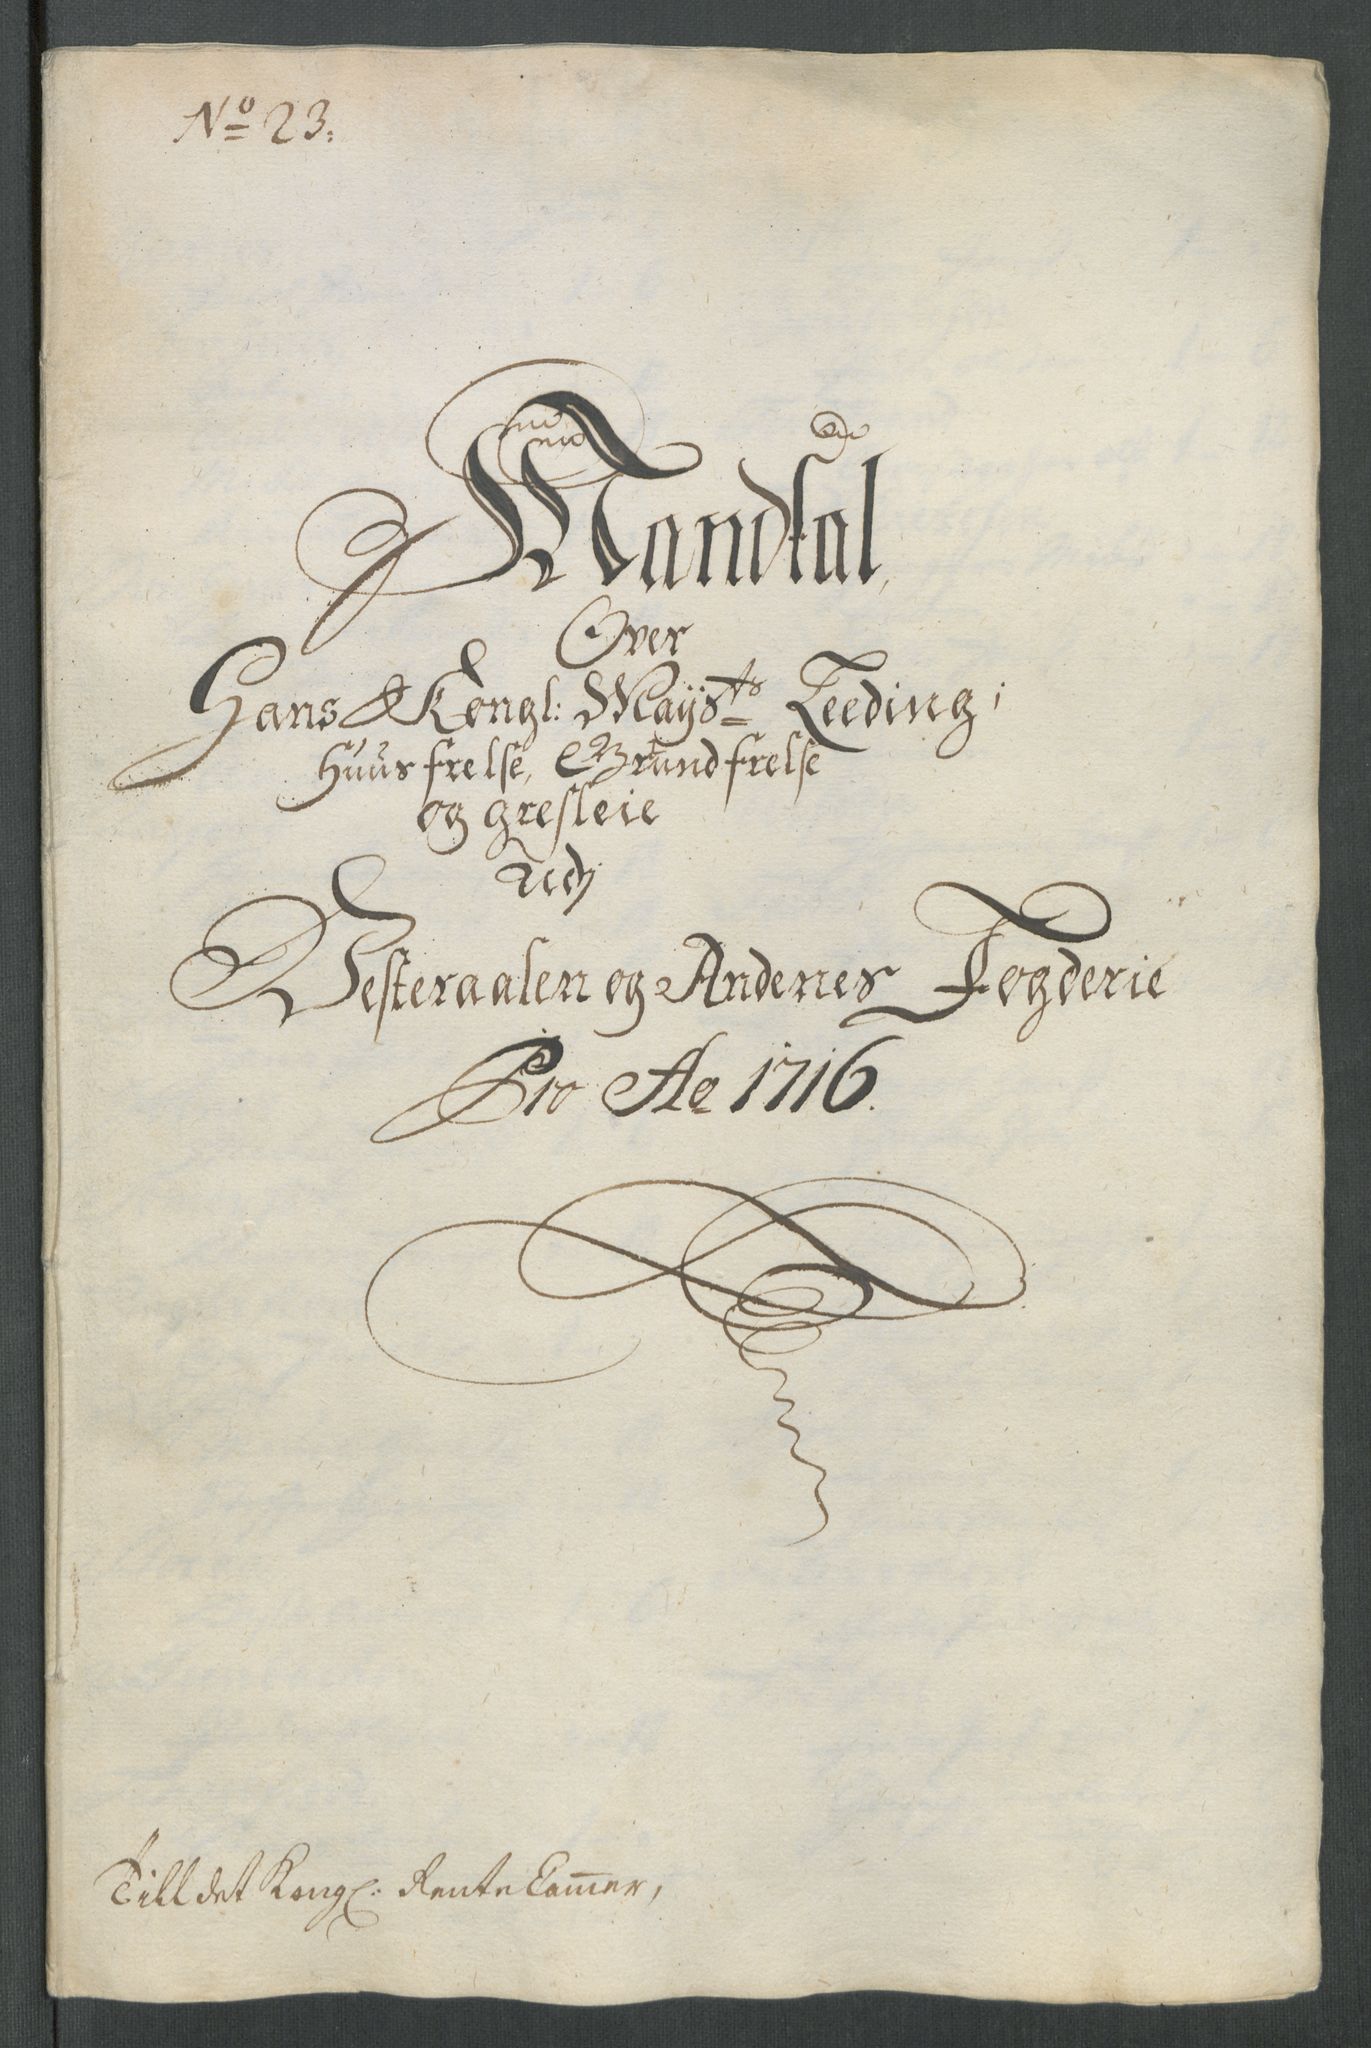 No 23.
Mandtal,
Over
Hans Kongl: Mayst:s Leeding,
Huusfrelse, Grundfrelse
og gresleie
Udj
Westeraalen og Andenes Fogderie
Pro Ao 1716.
Till det Kongl: Rente Cammer,